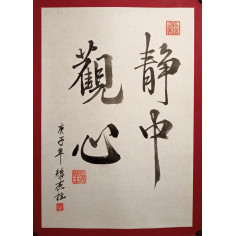 靜中
觀心
庚子年